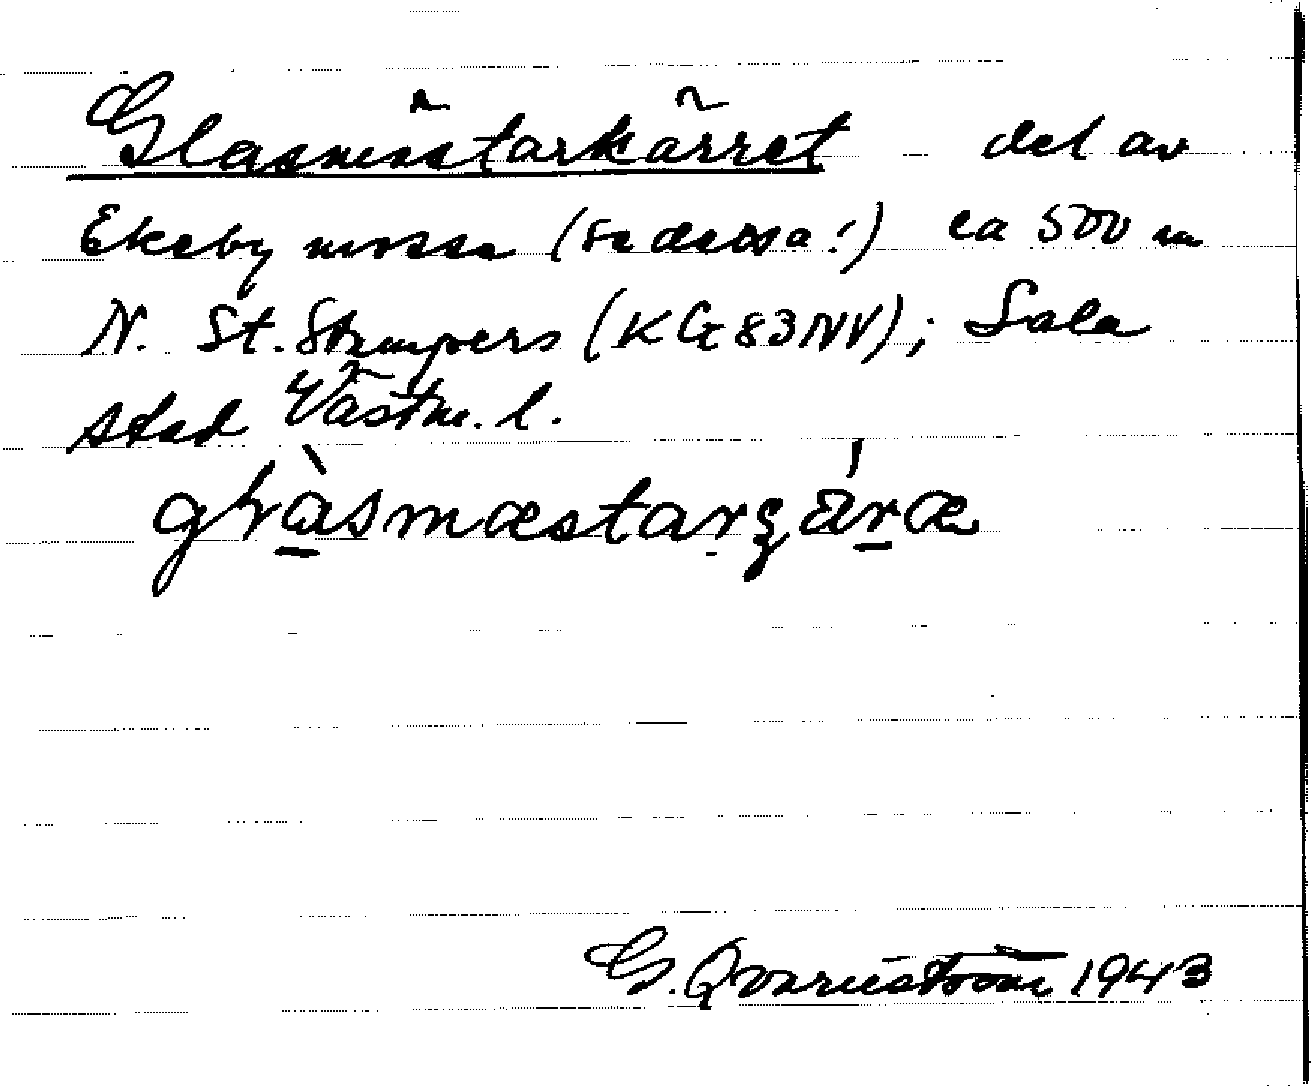 Glasmästarkärret del av
Ekeby mossa (se dessa!) ca 500 m
N. St. Stampers (KG 83 NV); Sala
stad Västm. l.
glàsmæstarȿä́ræ
G. Qvarnström 1943